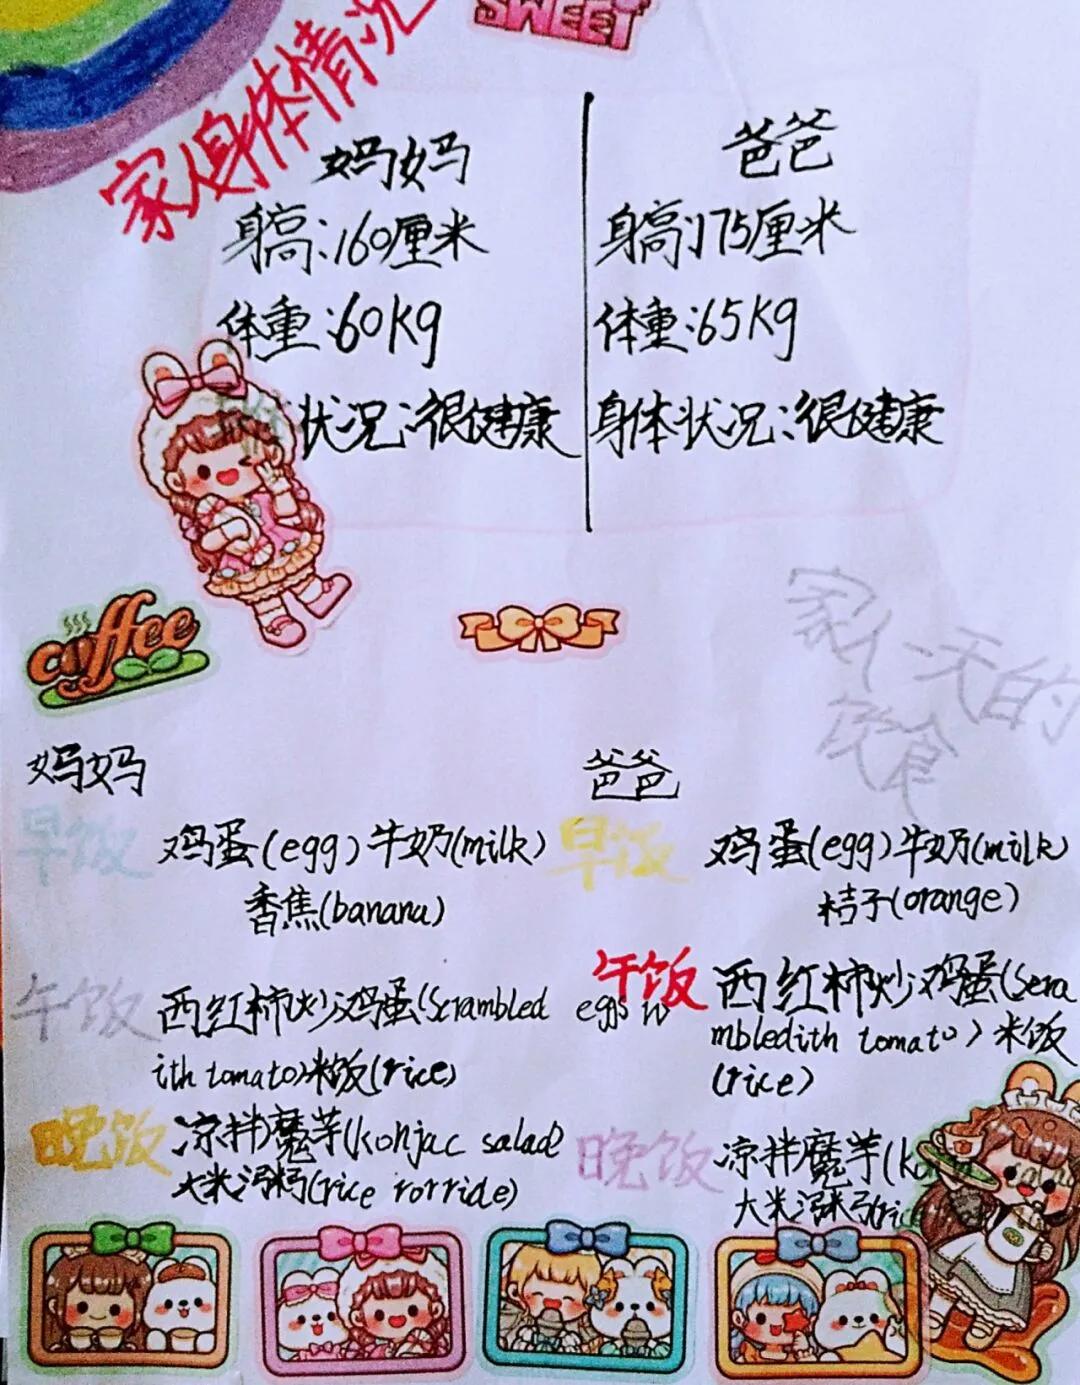 SWEET
家人身体情况
妈妈
身高:160厘米
体重:60kg
状况:很健康
爸爸
身高:175厘米
体重:65kg
身体状况:很健康
coffee
家人一天的
饮食
妈妈
早饭 鸡蛋(egg)牛奶(milk)
香焦(banana)
午饭 西红柿炒鸡蛋(Scrambled eggs w
ith tomato)米饭(rice)
晚饭 凉拌魔芋(konjac salad)
大米汤粥(rice rorride)
爸爸
早饭 鸡蛋(egg)牛奶(milk)
桔子(orange)
午饭 西红柿炒鸡蛋(Scra
mbledith tomato)米饭
(rice)
晚饭 凉拌魔芋(
大米汤粥(rice